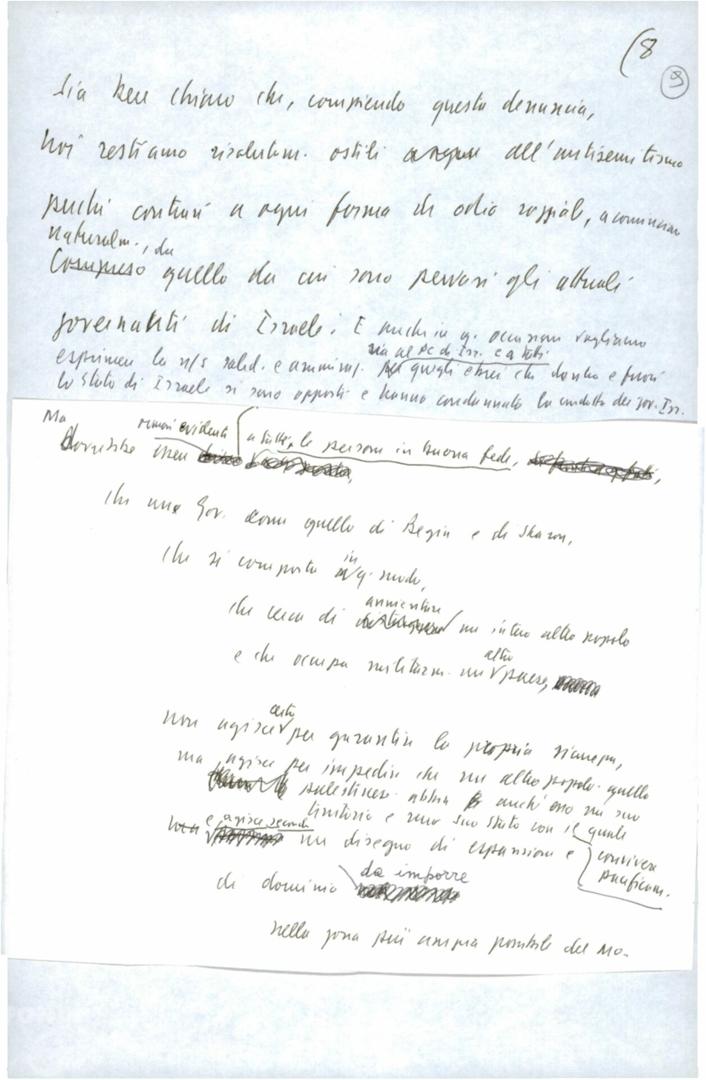 (8
9
Sia ben chiaro che, compiendo questa denuncia,
noi restiamo risolutam. ostili all'antisemitismo
poiché contrari a ogni forma di odio razziale, a cominciare
naturalm., da
Compreso quello da cui sono pervasi gli attuali
governanti di Israele. E anche in q. occasione vogliamo
sia al PC di Isr. e a tutti
esprimere la n/s solid. e ammiraz. per quegli ebrei che dentro e fuori
lo stato di Israele si sono opposti e hanno condannato la condotta dei gov. Isr.
Ma
ormai evidente a tutte le persone in buona fede,
dovrebbe essere
che un Gov. come quello di Begin e di Sharon,
in
che si comporta q. modo,
annientare
che cerca di un intero altro popolo
altro
e che occupa militarm. un paese,
certo
non agisce per garantire la propria sicurezza,
ma agisce per impedire che un altro popolo quello
palestinese abbia anche esso un suo
territorio e uno suo stato con il quale
e agisce secondo
un disegno di espansione e convivere
pacificam.
da imporre
di dominio
nella zona più ampia possibile del MO.